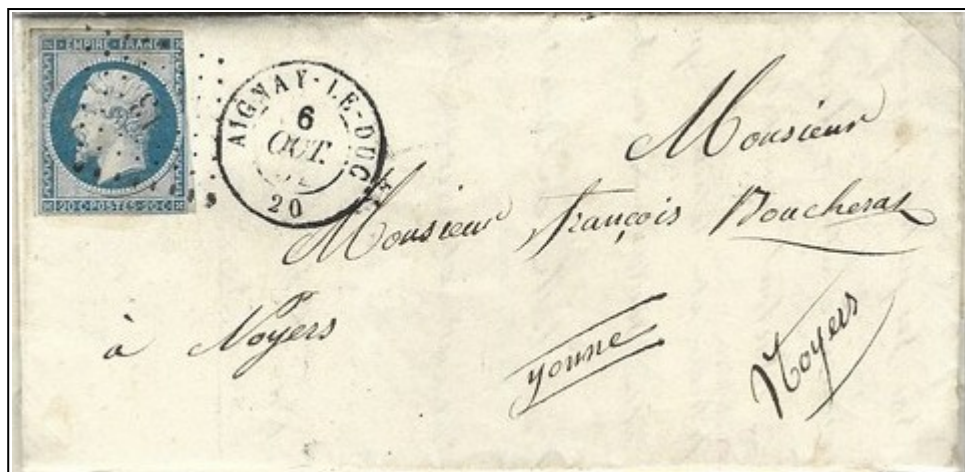 EMPIRE FRANC
20·C·POSTES·20·C
AIGNAY-LE-DUC
6
OCT.
20
Monsieur
Monsieur françois Boucheras
à Noyers
yonne
Noyers